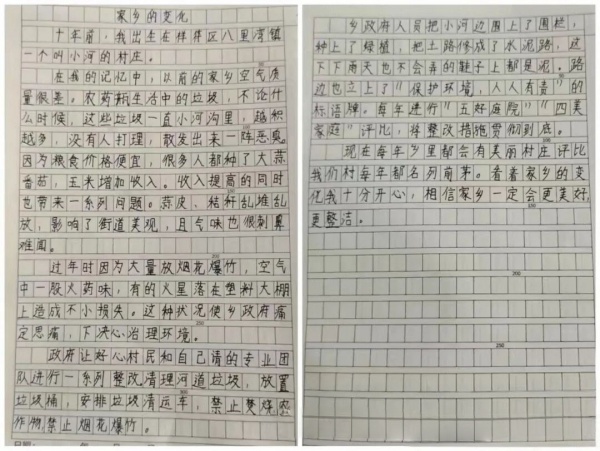 家乡的变化
十年前,我出生在祥符区八里湾镇
一个叫小河的村庄。
在我的记忆中,以前的家乡空气质
量很差。农药瓶生活中的垃圾,不论什
么时候,这些垃圾一直小河沟里,越积
越多,没有人打理,散发出来一阵恶臭。
因为粮食价格便宜,很多人都种了大蒜
番茄,玉米增加收入。收入提高的同时
也带来一系列问题。蒜皮、秸秆乱堆乱
放,影响了街道美观,且气味也很刺鼻
难闻。
过年时因为大量放烟花爆竹,空气
中一股火药味,有的火星落在塑料大棚
上造成不小损失。这种状况使乡政府痛
定思痛,下决心治理环境。
政府让好心村民和自己请的专业团
队进行一系列整改清理河道垃圾,放置
垃圾桶,安排垃圾清运车,禁止焚烧农
作物禁止烟花爆竹。
乡政府人员把小河边围上了围栏,
种上了绿植,把土路修成了水泥路,这
下下雨天也不会弄的鞋子上都是泥。路
边也立上了"保护环境,人人有责"的
标语牌。每年进行"五好庭院""四美
家庭"评比,将整改措施贯彻到底。
现在每年乡里都会有美丽村庄评比
我们村每年都名列前茅。看着家乡的变
化我十分开心,相信家乡一定会更美好,
更整洁。